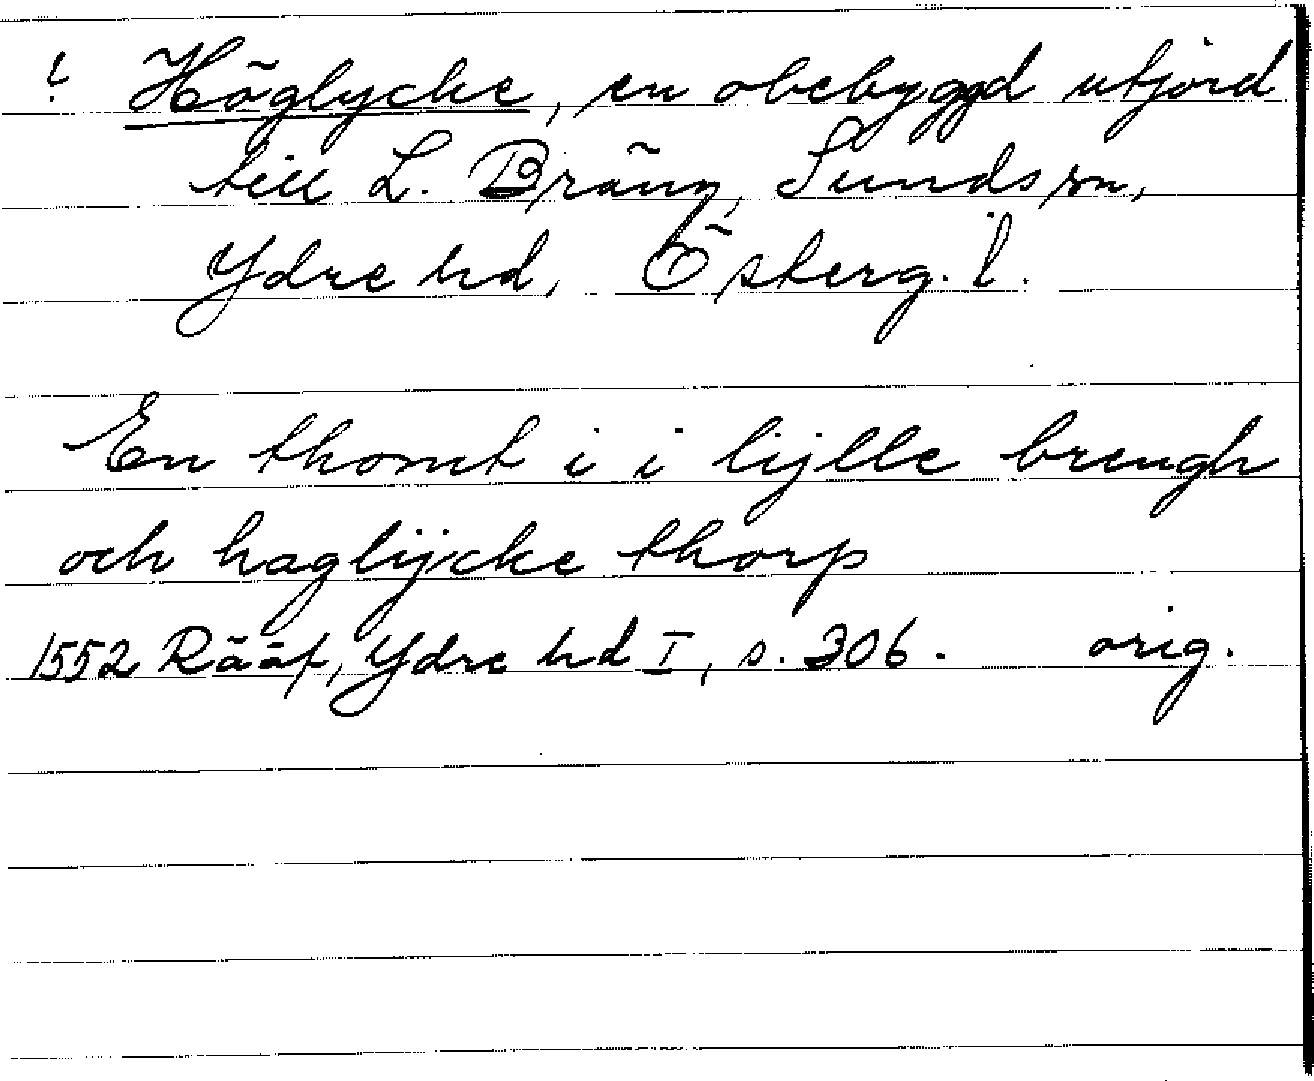 ? Höglycke, en obebygd utjord
till L. Bräng, Sunds sn,
Ydre hd, Österg. l.
En thomt i i lijlle brengh
och haglijcke thorp
1552 Rääf, Ydre hd I, s. 306. orig.